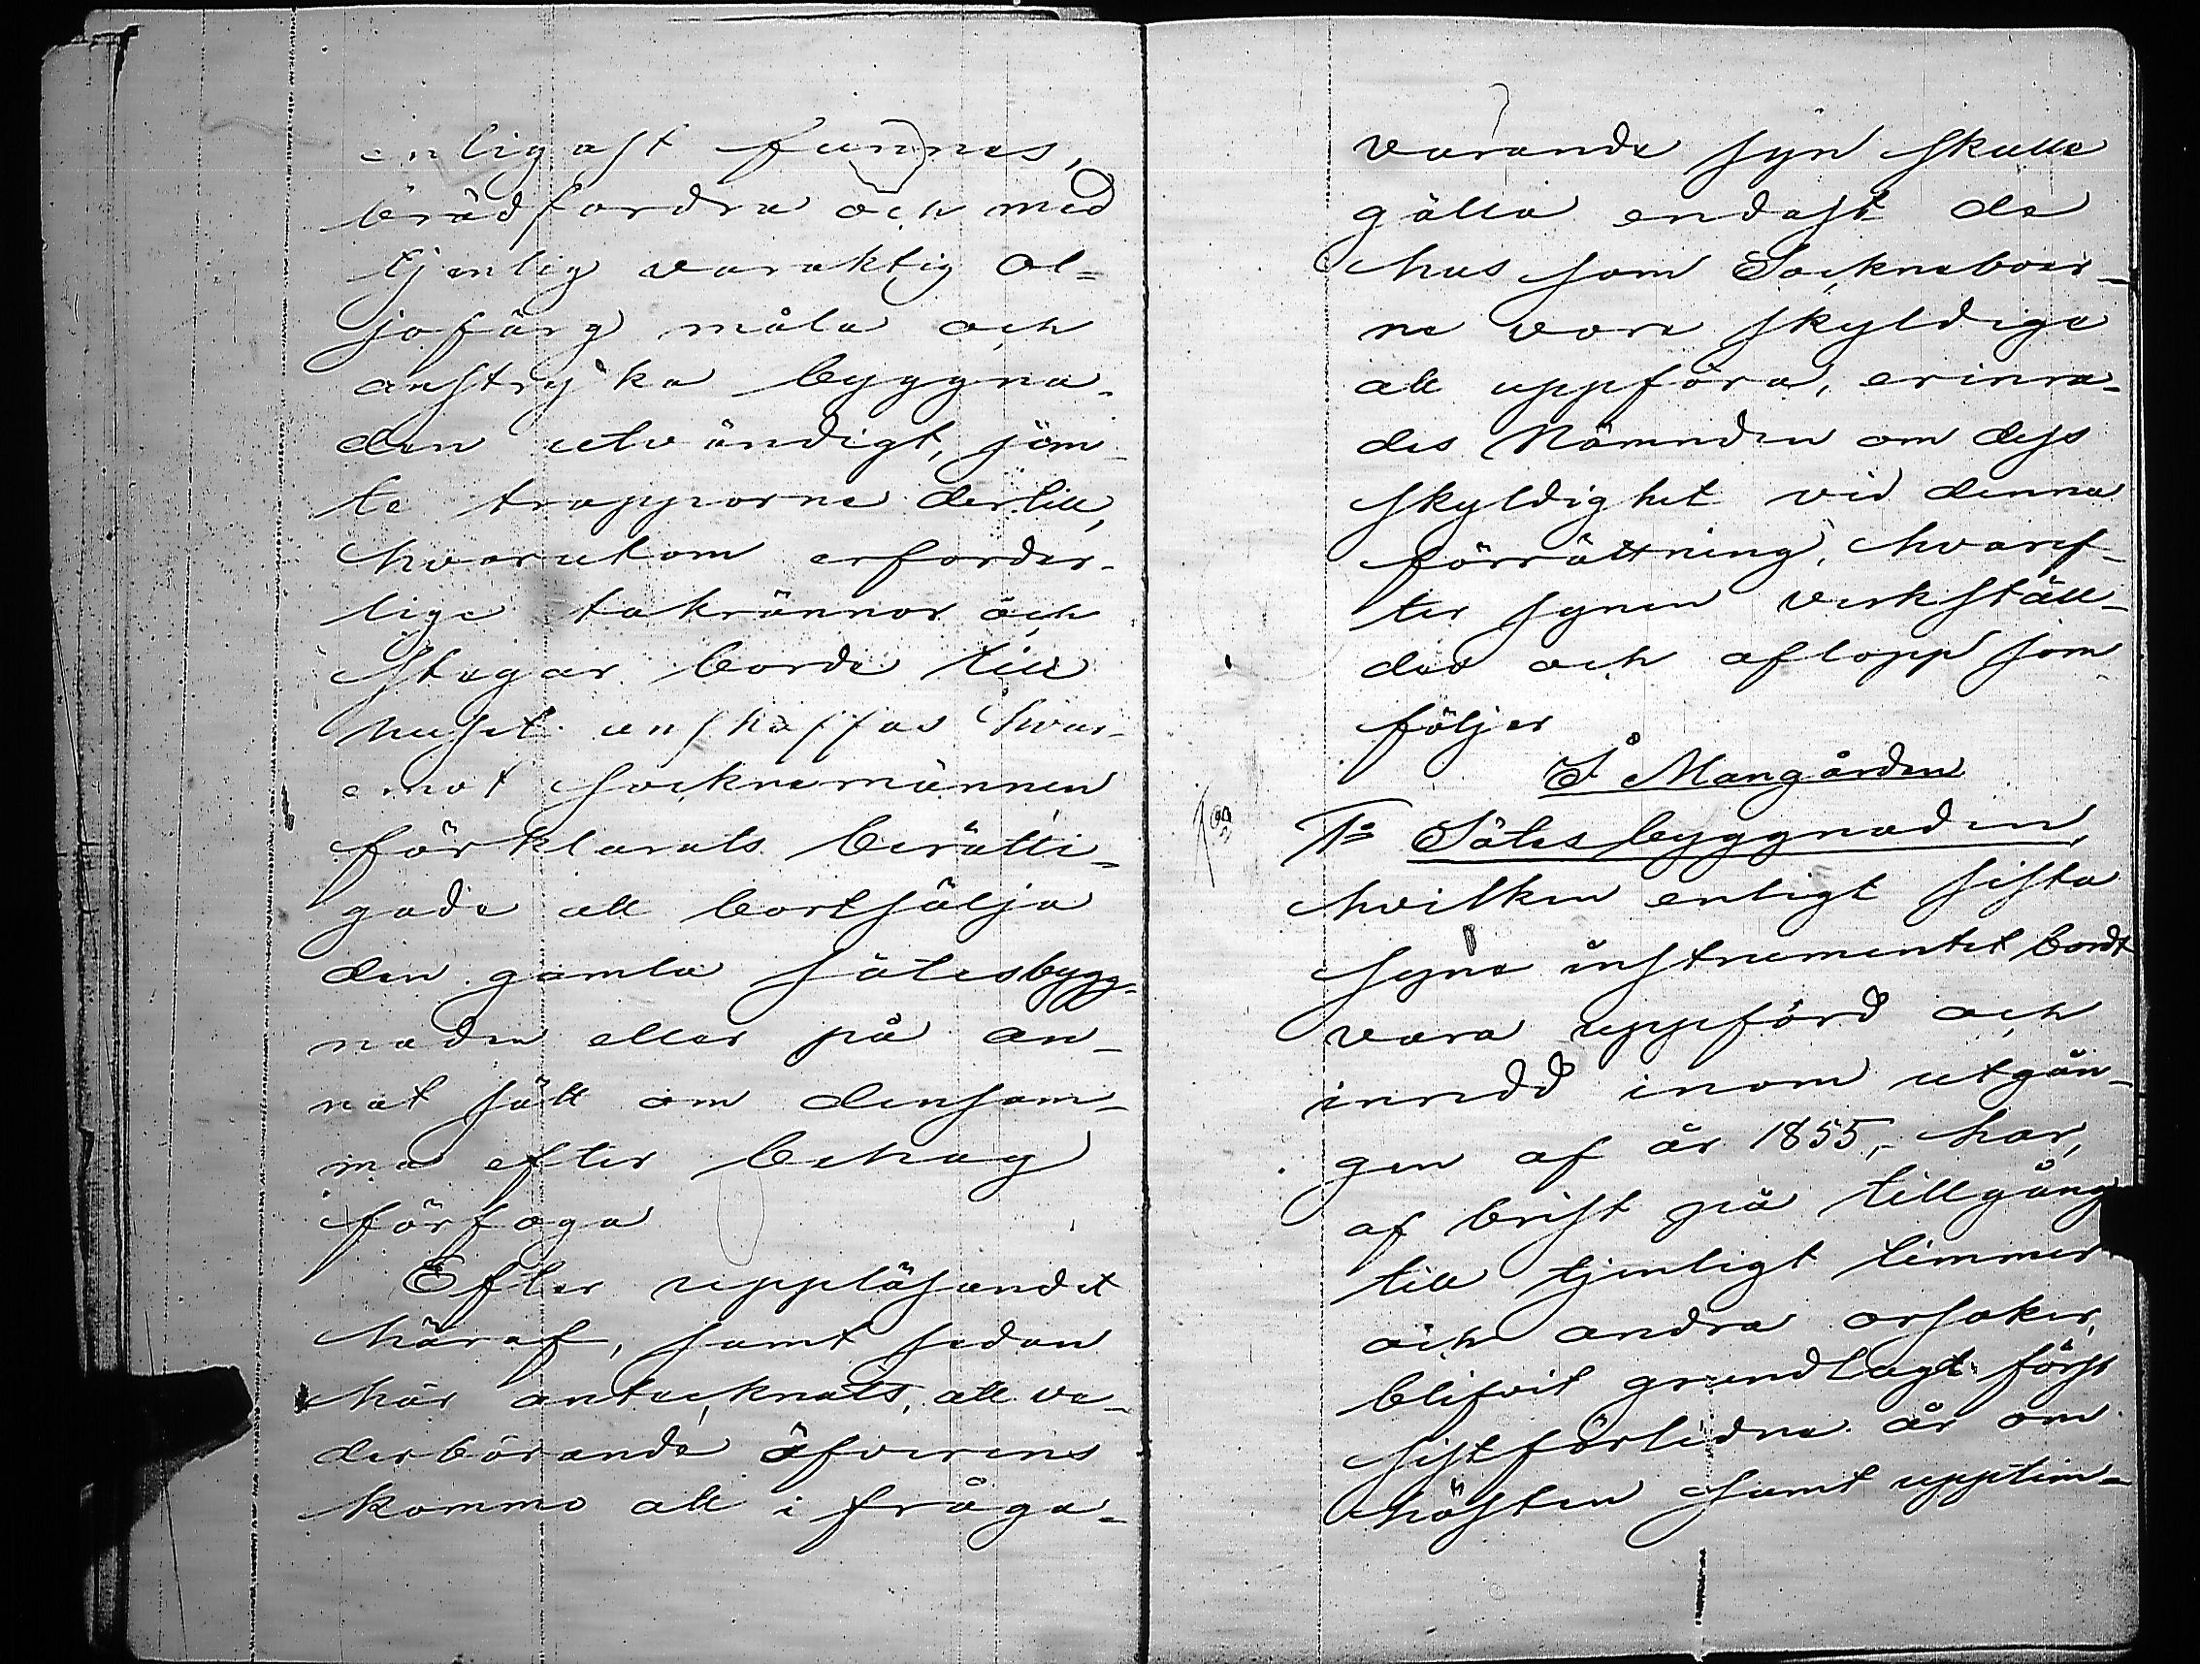 enligast funnes,
brädfordra och med
tjenlig varaktig ol-
jofärg måla och
anstryka byggna-
den utvändigt, jäm-
te trapporne dertill,
hvarutom erforder-
lige takrännor och
stegar borde till
huset anskaffas hvar-
emot socknemännen
förklarats berätti-
gade att bortsälja
den gamla sätesbygg-
naden eller på an-
nat sätt om densam-
ma efter behag
förfoga
Efter uppläsandet
häraf, samt sedan
här antecknats, att ve-
derbörande öfverens
kommo att i fråga-
varande syn skulle
gälla endast de
hus som Socknebor-
ne vore skyldige
att uppföra, erinra-
des Nämnden om dess
skyldighet vid denna
förrättning, hvaref-
ter synen verkställ-
des och aflopp som
följer
Å Mangården
1º Sätesbyggnaden,
hvilken enligt sista
syne instrumentet bordt
vara uppförd och
inredd inom utgån-
gen af år 1855, har,
af brist på tillgång
till tjenligt timmer
och andra orsaker,
blifvit grundlagd först
sistförlidne år om
hösten samt upptim-